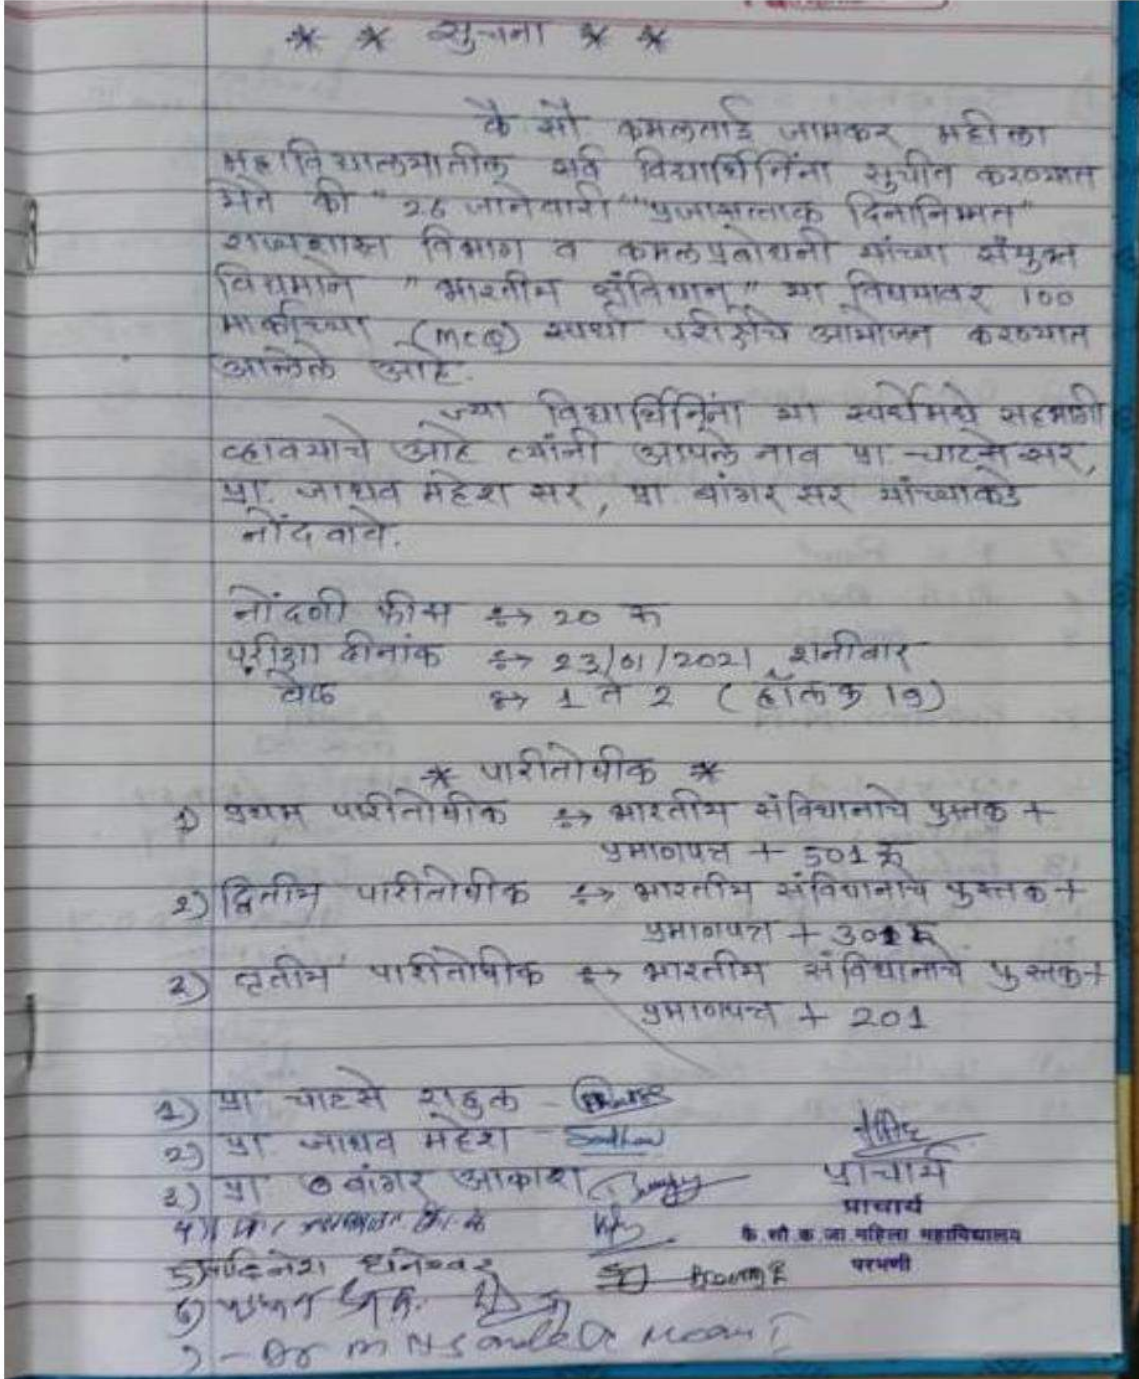 * * सुचना * *
कै सौ. कमलताई जामकर महीला
महाविद्यालयातील सर्व विद्यार्थिनिंना सुचीत करण्यात
येते की "26 जानेवारी" "प्रजासत्ताक दिनानिमत"
राज्यशास्त्र विभाग व कमलप्रबोधनी यांच्या संयुक्त
विद्यमाने "भारतीय संविधान" या विषयावर 100
मार्काच्या (MCQ) स्पर्धा परीक्षेचे आयोजन करण्यात
आलेले आहे.
ज्या विद्यार्थिनिंना या स्पर्धेमधे सहभागी
व्हावयाचे आहे त्यांनी आपले नाव प्रा. चाटसे सर,
प्रा. जाधव महेश सर, प्रा बांगर सर यांच्याकडे
नोंदवावे.
नोंदणी फीस 20 रु
परीक्षा दीनांक 23/01/2021 शनीवार
वेळ 1 ते 2 (हॉल क्र 19)
* पारीतोषीक *
1) प्रथम पारीतोषीक भारतीय संविधानाचे पुस्तक +
प्रमाणपत्र + 501 रू
2) द्वितीय पारीतोषीक भारतीय संविधानाचे पुस्तक +
प्रमाणपत्र + 301 रू
3) तृतीय पारीतोषीक भारतीय संविधानाचे पुस्तक +
प्रमाणपत्र + 201
1) प्रा चाटसे राहुल
2) प्रा. जाधव महेश -
3) प्रा बांगर आकाश
प्राचार्य
प्राचार्य
कै. सौ. क. जा. महिला महाविद्यालय
परभणी
4)
5)
6)